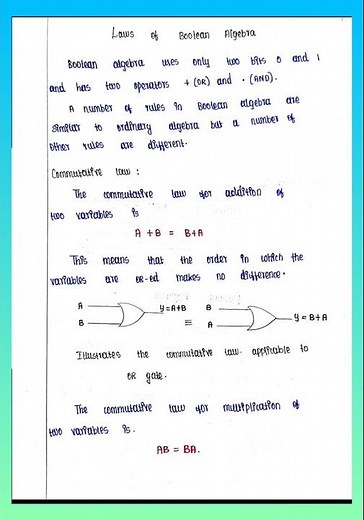 Laws of Boolean Algebra
Boolean algebra uses only two bits 0 and 1
and has two operators + (OR) and · (AND).
A number of rules in Boolean algebra are
similar to ordinary algebra but a number of
other rules are different.
Commutative law :
The commutative law for addition of
two variables is
A + B = B+A
This means that the order in which the
variables are OR-ed makes no difference.
A
B
y=A+B
≡
B
A
y = B+A
Illustrates the commutative law. applicable to
OR gate.
The commutative law for multiplication of
two variables is.
AB = BA.